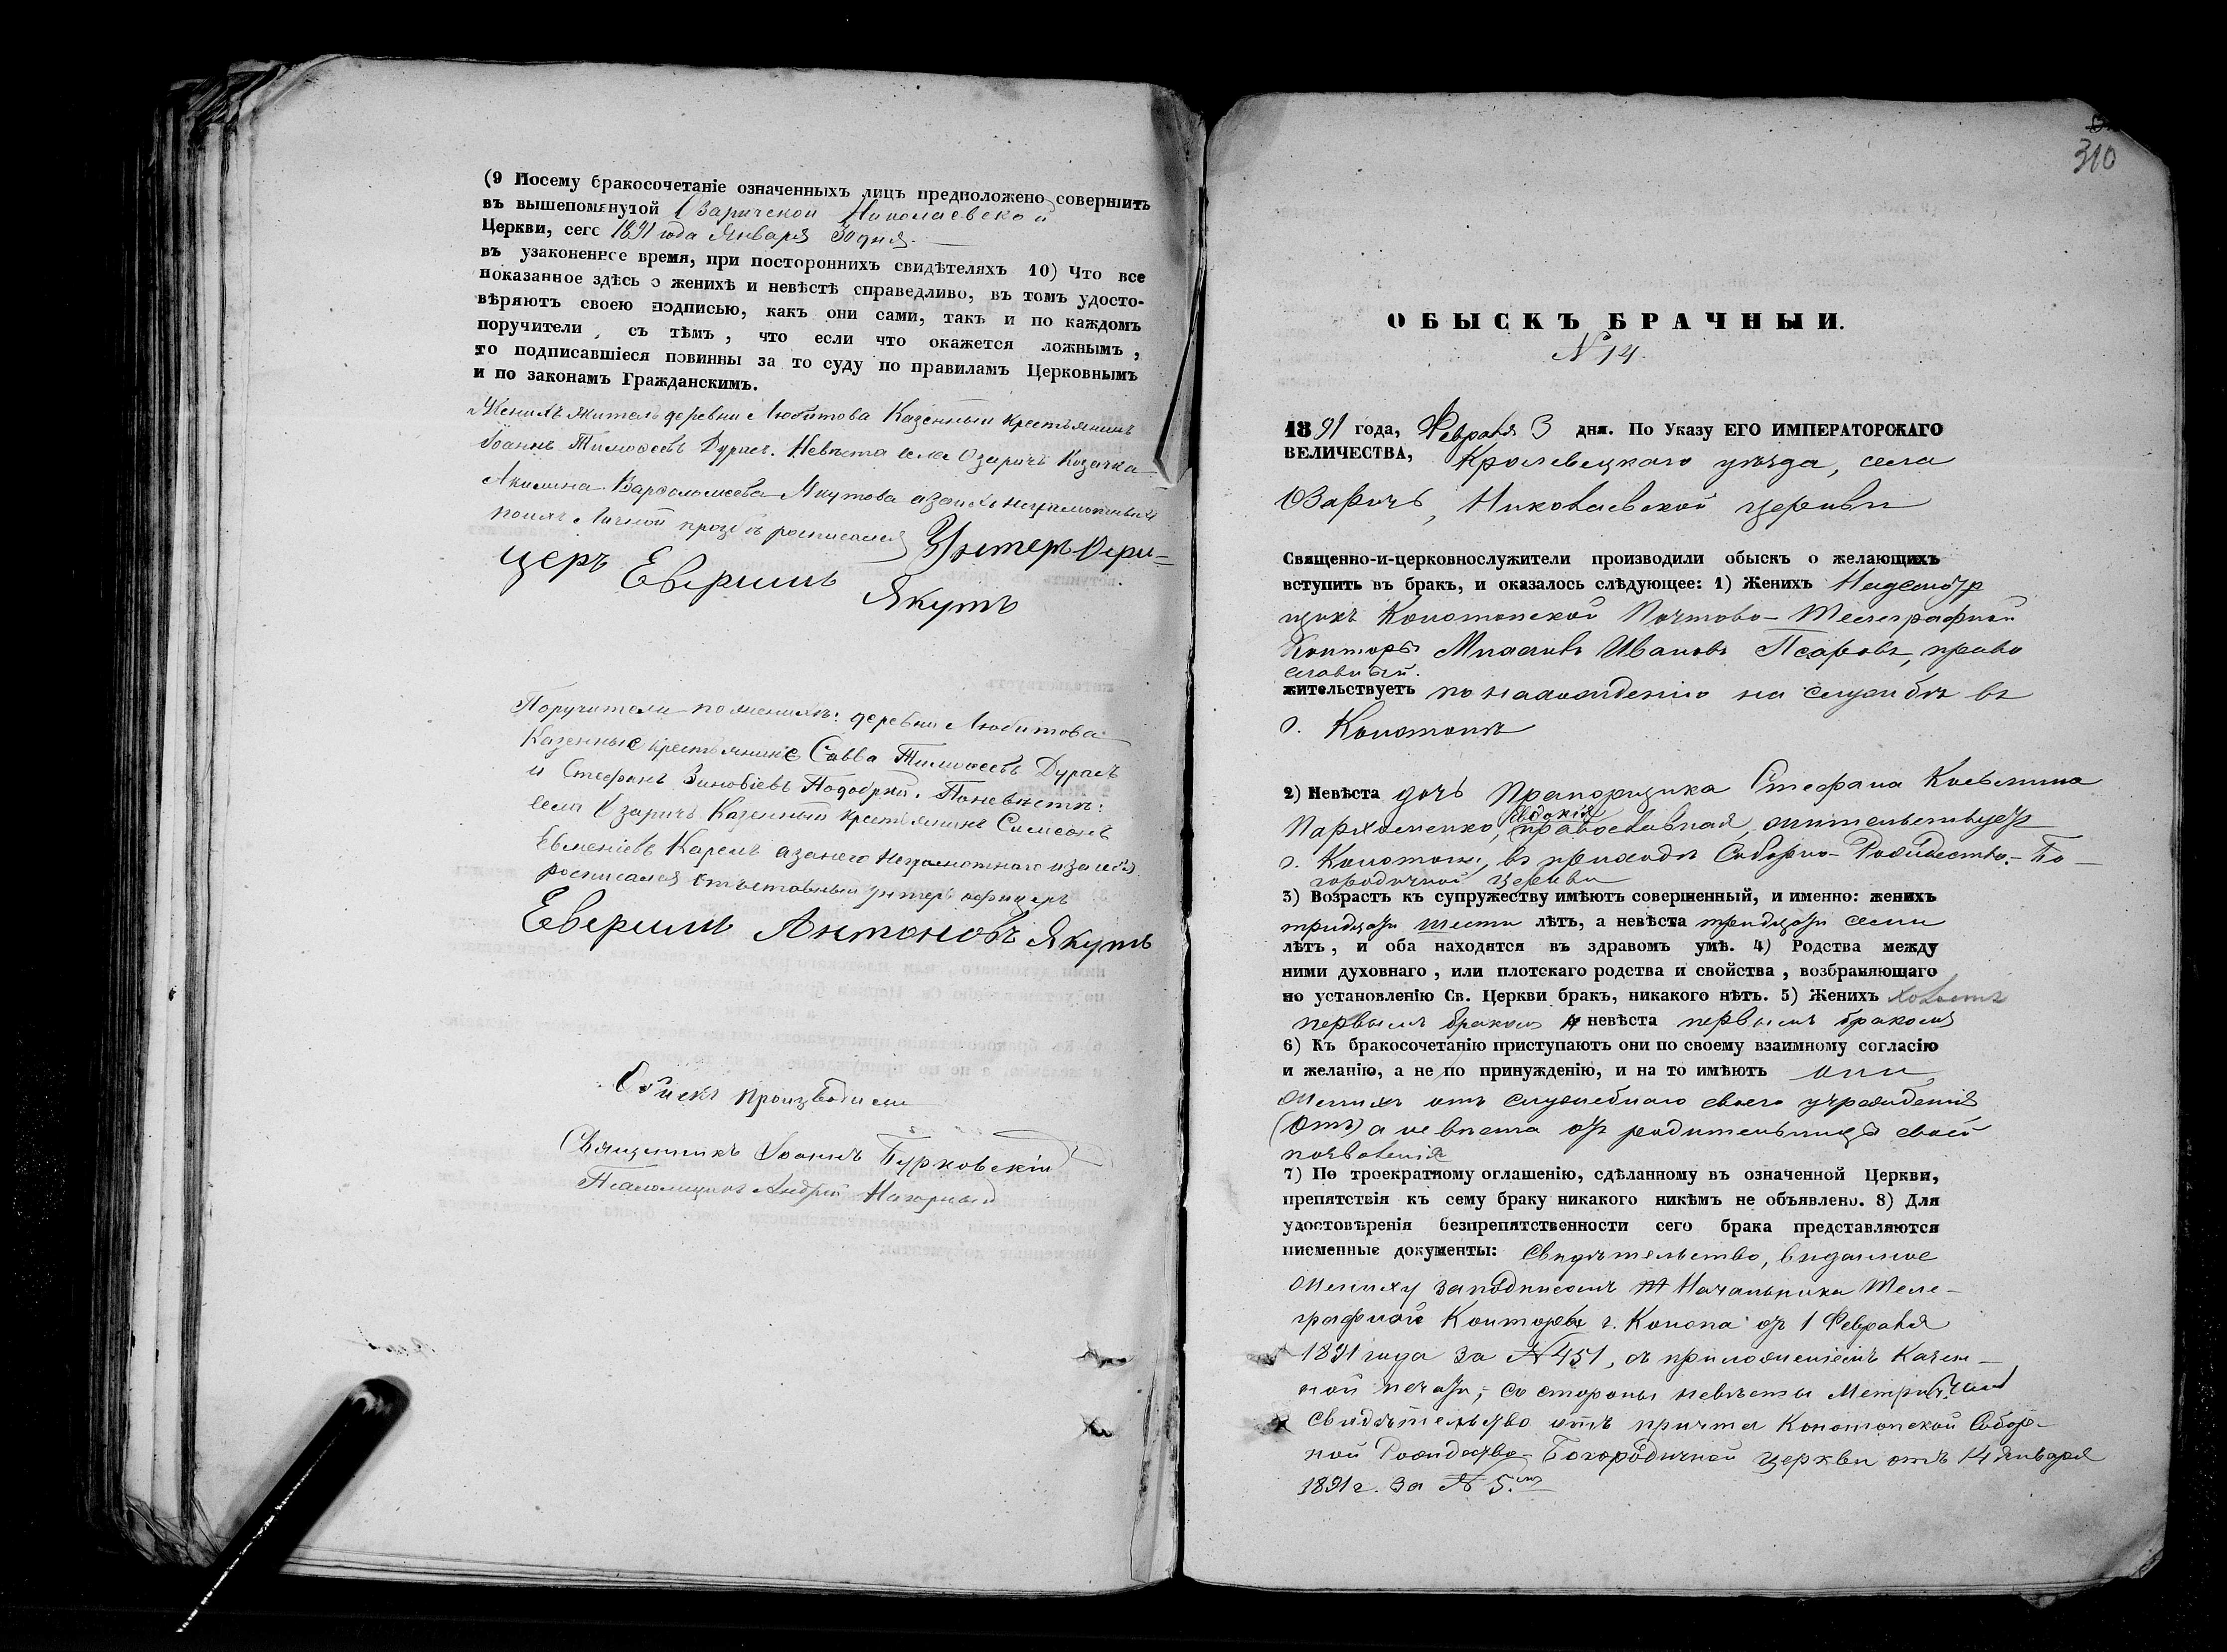 (9 Посему бракосочетаніе означенныхъ лицъ предположено совершить
въ вышепомянутой Озаричской Николаевской
Церкви, сего 1891 года Января 30 дня.
въ узаконенное время, при постороннихъ свидѣтеляхъ 10) Что все
показанное здѣсь о женихѣ и невѣстѣ справедливо, въ томъ удосто-
вѣряютъ своею подписью, какъ они сами, такъ и по каждомъ
поручители, съ тѣмъ, что если что окажется ложнымъ,
то подписавшіеся повинны за то суду по правиламъ Церковнымъ
и по законамъ Гражданскимъ.
Женихъ житель деревни Любитова Казенный крестьянинъ
Іоаннъ Тимофеевъ Дурасъ. Невѣста села Озаричъ Козачка
Акилина Варфоломеева Якутова а за нихъ неграмотныхъ
по ихъ личной прозьбѣ росписался Унтеръ Офи-
церъ Еверимъ Якутъ
Поручители по женихѣ: деревни Любитова
Казенные крестьяние Савва Тимофеевъ Дурасъ
и Стефанъ Зиновіевъ Подобрій. По невѣстѣ:
села Озаричъ Казенный крестьянинъ Симеонъ
Евменіевъ Карепъ а за него неграмотнаго и за себя
росписался отъставный унтеръ офицеръ
Еверимъ Антоновъ Якутъ
Обискъ производили
Священникъ Іоаннъ Бурковскій
Псаломщикъ Андрей Нагорный
310
ОБЫСКЪ БРАЧНЫЙ.
№ 14.
1891 года, Февраля 3 дня. По Указу ЕГО ИМПЕРАТОРСКАГО
ВЕЛИЧЕСТВА, Кролевецкаго уѣзда, села
Озаричъ, Николаевской церкви
Священно-и-церковнослужители производили обыскъ о желающихъ
вступить въ бракъ, и оказалось слѣдующее: 1) Женихъ Надсмотр
щикъ Конотопской Почтово-Телеграфной
Конторы Иванов Псаровъ, право
славный.
жительствуетъ по нахожденію на службѣ въ
г. Конотопѣ
2) Невѣста дочь Прапорщика Стефана Косьмина
Пархоменко, Евдокія православная, жительствует
г. Конотопѣ, въ приходѣ Соборно-Рождество-Бо-
городичной церкви
3) Возрастъ къ супружеству имѣютъ совершенный, и именно: женихъ
тридцати шести лѣтъ, а невѣста тридцати семи
лѣтъ, и оба находятся въ здравомъ умѣ. 4) Родства между
ними духовнаго, или плотскаго родства и свойства, возбраняющаго
по установленію Св. Церкви бракъ, никакого нѣтъ. 5) Женихъ холостъ
первымъ бракомъ а невѣста первымъ бракомъ
6) Къ бракосочетанію приступаютъ они по своему взаимному согласію
и желанію, а не по принужденію, и на то имѣютъ они,
женихъ отъ служебнаго своего учрежденія
(отъ) а невѣста от родительницы своей
позволенія
7) По троекратному оглашенію, сдѣланному въ означенной Церкви,
препятствія къ сему браку никакого никѣмъ не объявлено. 8) Для
удостовѣренія безпрепятственности сего брака представляются
писменные документы: свидѣтельство, виданное
жениху за подписомъ Начальника Теле-
графной Конторы г. Конопа от 1 Февраля
1891 года за № 451, съ приложеніемъ Казен-
ной печати; со стороны невѣсты Метричное
свидѣтельство отъ причта Конотопской Собор-
ной Рождество-Богородичной церкви отъ 14 Января
1891 г. за № 5.